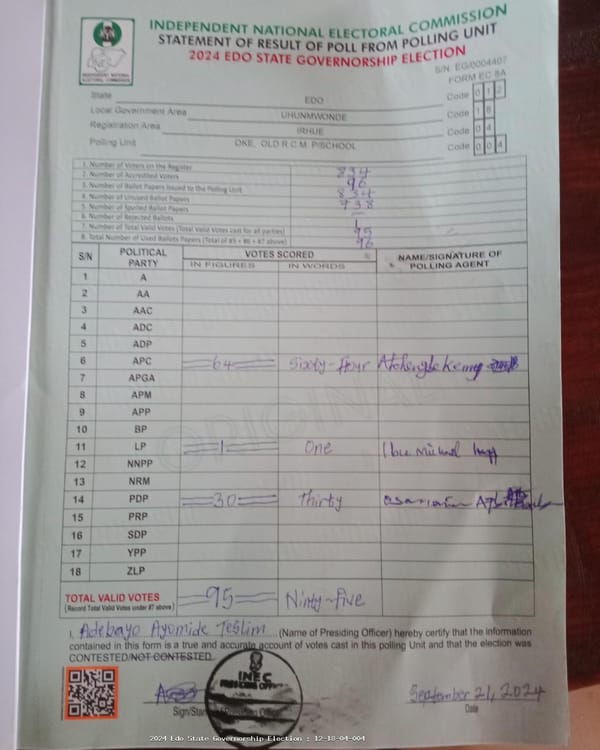 INDEPENDENT NATIONAL ELECTORAL COMMISSION
STATEMENT OF RESULT OF POLL FROM POLLING UNIT
2024 EDO STATE GOVERNORSHIP ELECTION
S/N. EG/0004407
FORM EC 8A
INDEPENDENT NATIONAL ELECTORAL COMMISSION
State EDO Code 0 1 2
Local Government Area UHUNMWONDE Code 1 8
Registration Area IRHUE Code 0 4
Polling Unit OKE, OLD R.C.M. P/SCHOOL Code 0 0 4
1. Number of Voters on the Register 834
2. Number of Accredited Voters 96
3. Number of Ballot Papers Issued to the Polling Unit 834
4. Number of Unused Ballot Papers 938
5. Number of Spoiled Ballot Papers —
6. Number of Rejected Ballots 1
7. Number of Total Valid Votes (Total Valid Votes cast for all parties) 95
8. Total Number of Used Ballots Papers (Total of #5 + #6 + #7 above) 96
S/N POLITICAL PARTY VOTES SCORED NAME/SIGNATURE OF POLLING AGENT
IN FIGURES IN WORDS
1 A
2 AA
3 AAC
4 ADC
5 ADP
6 APC 64 Sixty-four
7 APGA
8 APM
9 APP
10 BP
11 LP 1 One
12 NNPP
13 NRM
14 PDP 30 Thirty
15 PRP
16 SDP
17 YPP
18 ZLP
ORIGINAL
TOTAL VALID VOTES 95 Ninty-five
(Record Total Valid Votes under #7 above)
I, Adebayo Ayomide Teslim (Name of Presiding Officer) hereby certify that the information
contained in this form is a true and accurate account of votes cast in this polling Unit and that the election was
CONTESTED/NOT CONTESTED.
INEC
PRESIDING OFFICER
September 21, 2024
Sign/Stamp of Presiding Officer Date
2024 Edo State Governorship Election : 12-18-04-004